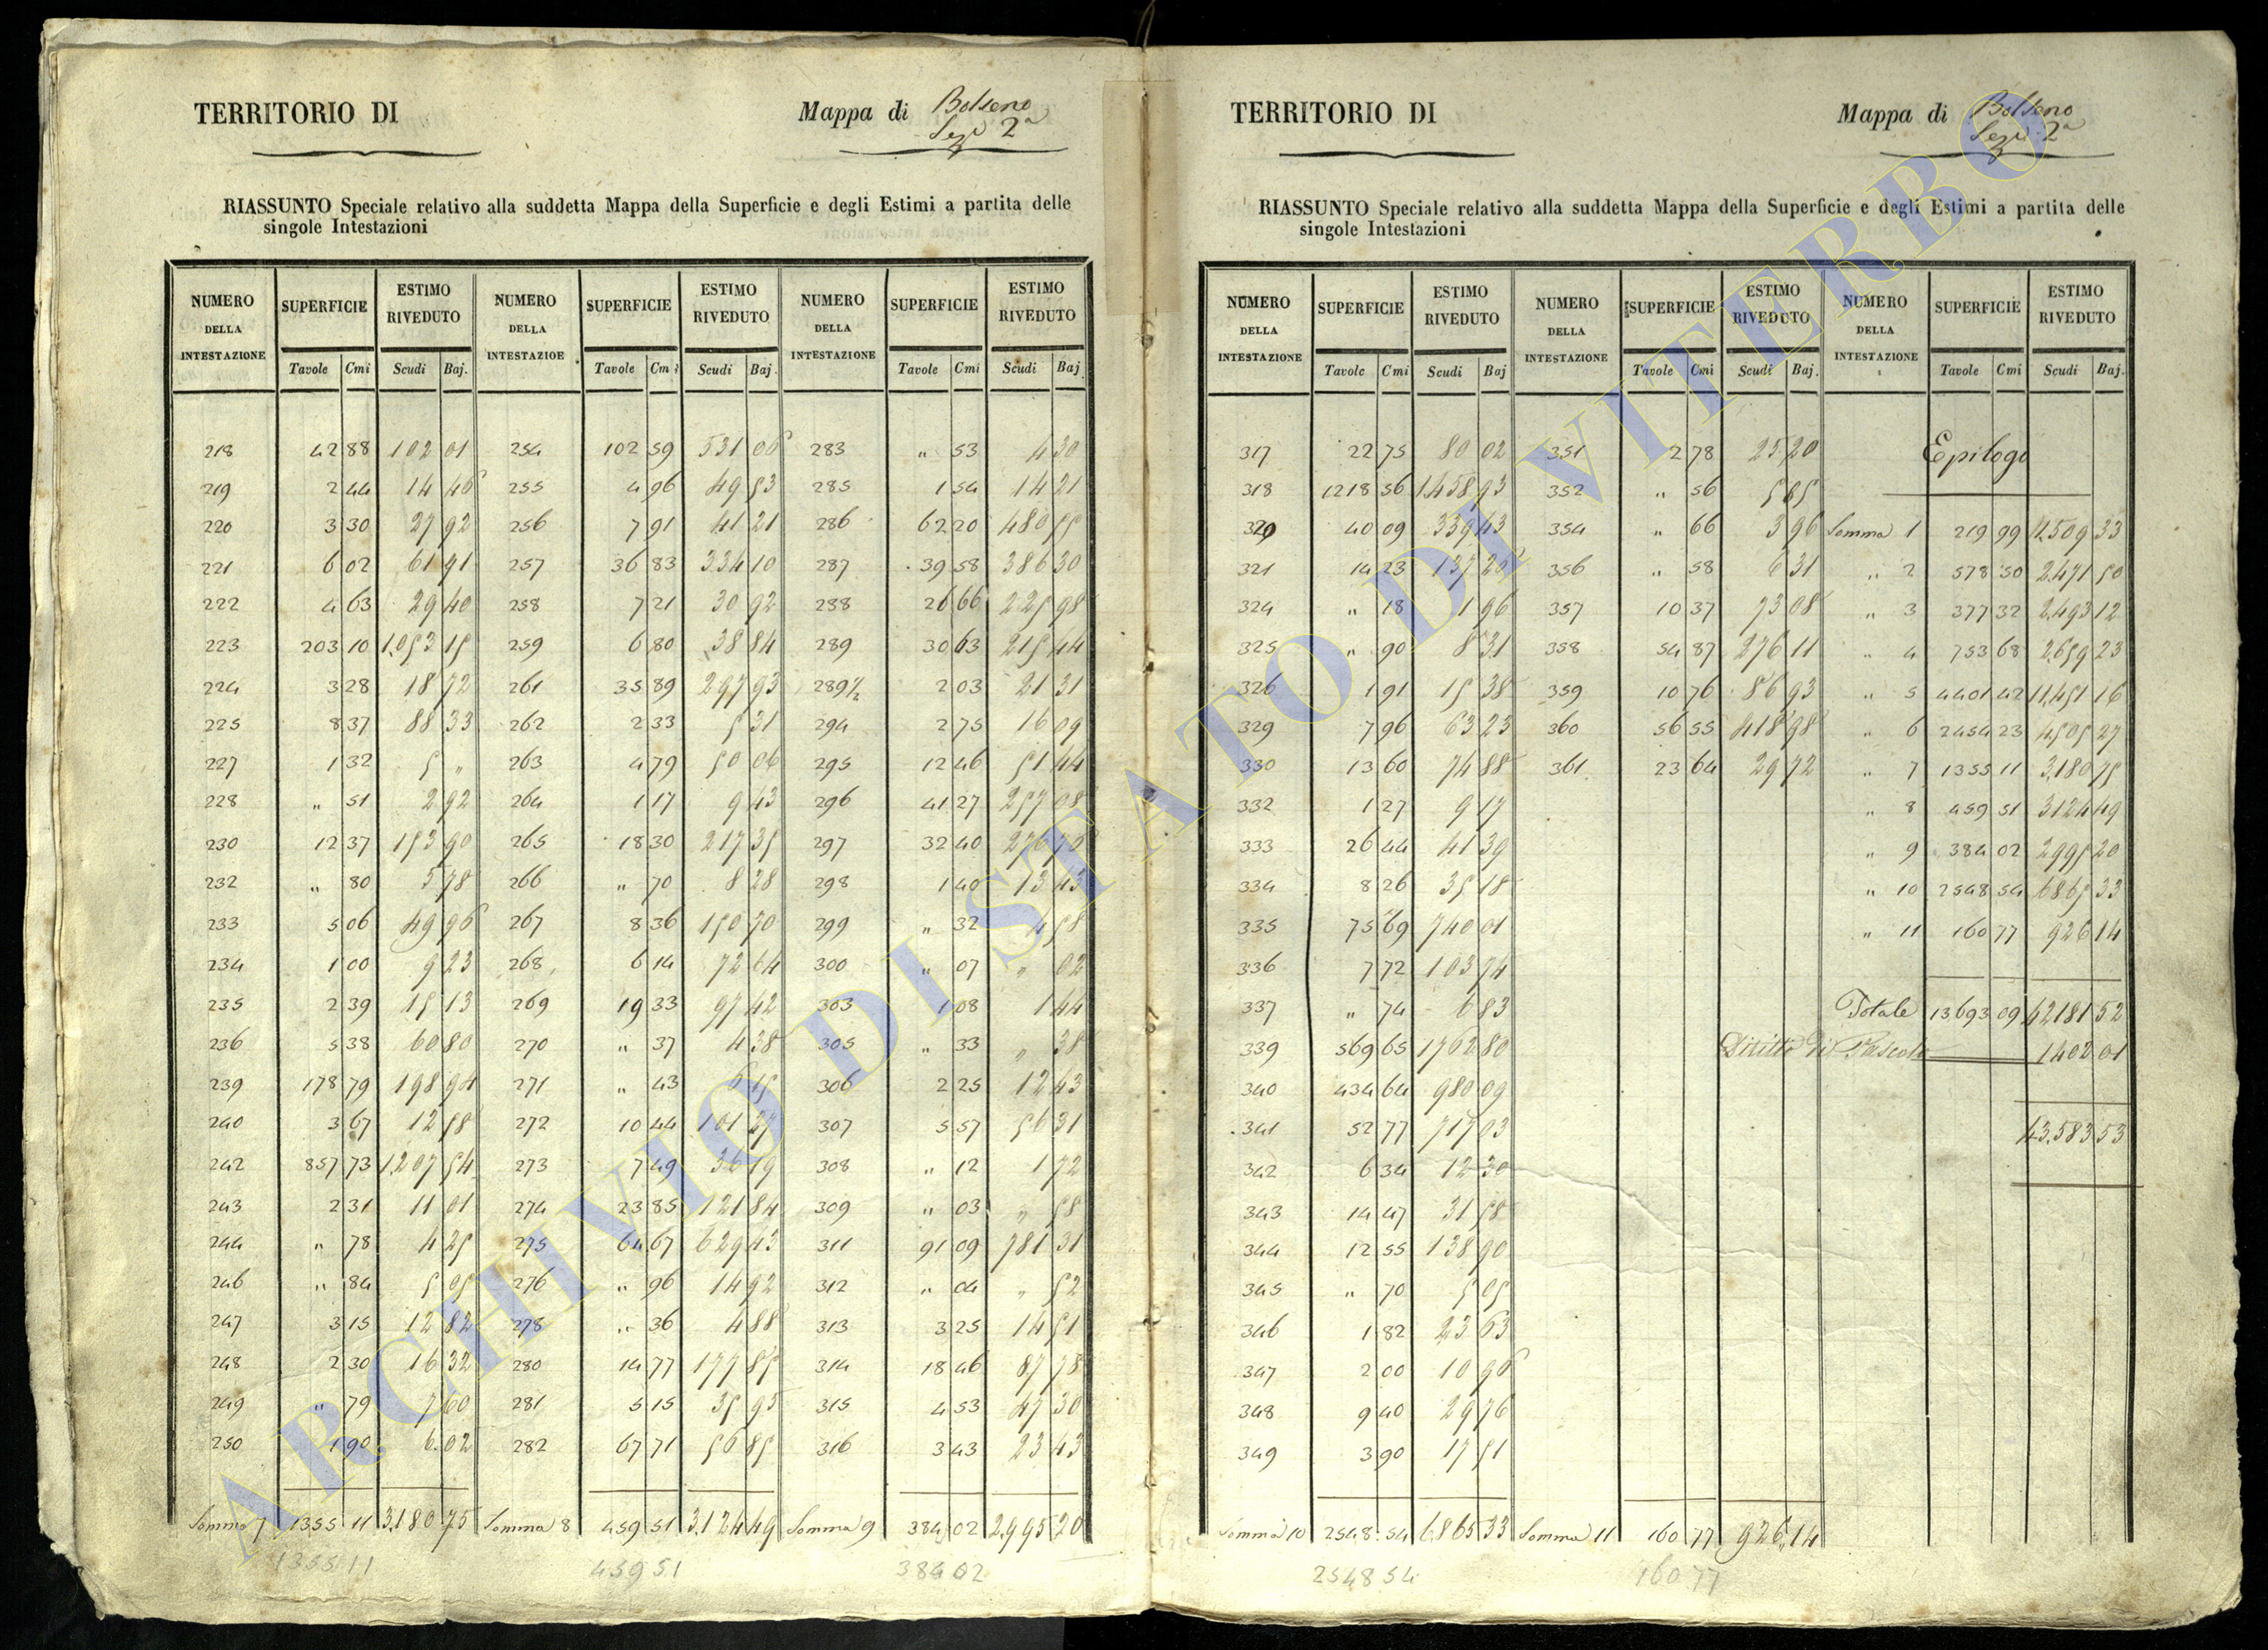 TERRITORIO DI
Mappa di Bolseno
Sezi 2a
RIASSUNTO Speciale relativo alla suddetta Mappa della Superficie e degli Estimi a partita delle
singole Intestazioni
NUMERO DELLA INTESTAZIONE SUPERFICIE ESTIMO RIVEDUTO NUMERO DELLA INTESTAZIOE SUPERFICIE ESTIMO RIVEDUTO NUMERO DELLA INTESTAZIONE SUPERFICIE ESTIMO RIVEDUTO
Tavole Cmi Scudi Baj. Tavole Cmi Scudi Baj. Tavole Cmi Scudi Baj.
218 42 88 102 01 254 102 59 531 06 283 " 53 4 30
219 2 44 14 46 255 4 96 49 53 285 1 54 14 21
220 3 30 27 92 256 7 91 41 21 286 62 20 480 55
221 6 02 61 91 257 36 83 334 10 287 39 58 386 30
222 4 63 29 40 258 7 21 30 92 288 26 66 225 98
223 203 10 1,053 15 259 6 80 38 84 289 30 63 215 44
224 3 28 18 72 261 35 89 297 93 289½ 2 03 21 31
225 8 37 88 33 262 2 33 5 31 294 2 75 16 09
227 1 32 5 " 263 4 79 50 06 295 12 46 51 44
228 " 51 2 92 264 1 17 9 43 296 41 27 257 08
230 12 37 153 90 265 18 30 217 35 297 32 40 276 70
232 " 80 5 78 266 " 70 8 28 298 1 40 13 43
233 5 06 49 96 267 8 36 150 70 299 " 32 4 58
234 1 00 9 23 268 6 14 72 64 300 " 07 " 02
235 2 39 15 13 269 19 33 97 42 303 1 08 1 44
236 5 38 60 80 270 " 37 4 38 305 " 33 " 38
239 178 79 198 94 271 " 43 6 15 306 2 25 12 43
240 3 67 12 58 272 10 44 101 27 307 5 57 56 31
242 857 73 1,207 54 273 7 49 36 19 308 " 12 1 72
243 2 31 11 01 274 23 85 121 84 309 " 03 " 58
244 " 78 4 25 275 64 67 629 43 311 91 09 781 31
246 " 84 5 05 276 " 96 14 92 312 " 04 " 52
247 3 15 12 82 278 " 36 4 88 313 3 25 14 51
248 2 30 16 32 280 14 77 177 85 314 18 46 87 78
249 " 79 7 60 281 5 15 35 95 315 4 53 47 30
250 1 90 6 02 282 67 71 56 85 316 3 43 23 43
Somma 7 1355 11 3,180 75 Somma 8 459 51 3,124 49 Somma 9 384 02 2,995 20
1355 11 459 51 384 02
TERRITORIO DI
Mappa di Bolseno
Sezi. 2a
RIASSUNTO Speciale relativo alla suddetta Mappa della Superficie e degli Estimi a partita delle
singole Intestazioni
NUMERO DELLA INTESTAZIONE SUPERFICIE ESTIMO RIVEDUTO NUMERO DELLA INTESTAZIONE SUPERFICIE ESTIMO RIVEDUTO NUMERO DELLA INTESTAZIONE SUPERFICIE ESTIMO RIVEDUTO
Tavole Cmi Scudi Baj Tavole Cmi Scudi Baj. Tavole Cmi Scudi Baj.
317 22 75 80 02 351 2 78 25 20 Epilogo
318 1218 56 1,458 93 352 " 56 5 65
320 40 09 339 43 354 " 66 3 96 Somma 1 219 99 4,509 33
321 14 23 137 26 356 " 58 6 31 " 2 578 50 2,471 50
324 " 18 1 96 357 10 37 73 08 " 3 377 32 2,493 12
325 " 90 8 31 358 54 87 276 11 " 4 753 68 2,659 23
326 1 91 15 38 359 10 76 86 93 " 5 4401 42 11,451 16
329 7 96 63 23 360 56 55 418 98 " 6 2454 23 4505 27
330 13 60 74 88 361 23 64 29 72 " 7 1355 11 3,180 75
332 1 27 9 17 " 8 459 51 3124 49
333 26 44 41 39 " 9 384 02 2995 20
334 8 26 35 18 " 10 2548 54 6865 33
335 75 69 740 01 " 11 160 77 926 14
336 7 72 103 74
337 " 74 6 83 Totale 13693 09 42181 52
339 569 65 1762 80 Diritto di Pascolo 1402 01
340 434 64 980 09
341 52 77 717 03 43,583 53
342 6 34 12 30
343 14 47 31 58
344 12 55 138 90
345 " 70 5 05
346 1 82 23 63
347 2 00 10 96
348 9 40 29 76
349 3 90 17 51
Somma 10 2548 54 6,865 33 Somma 11 160 77 926 14
2548 54 160 77
ARCHIVIO DI STATO DI VITERBO